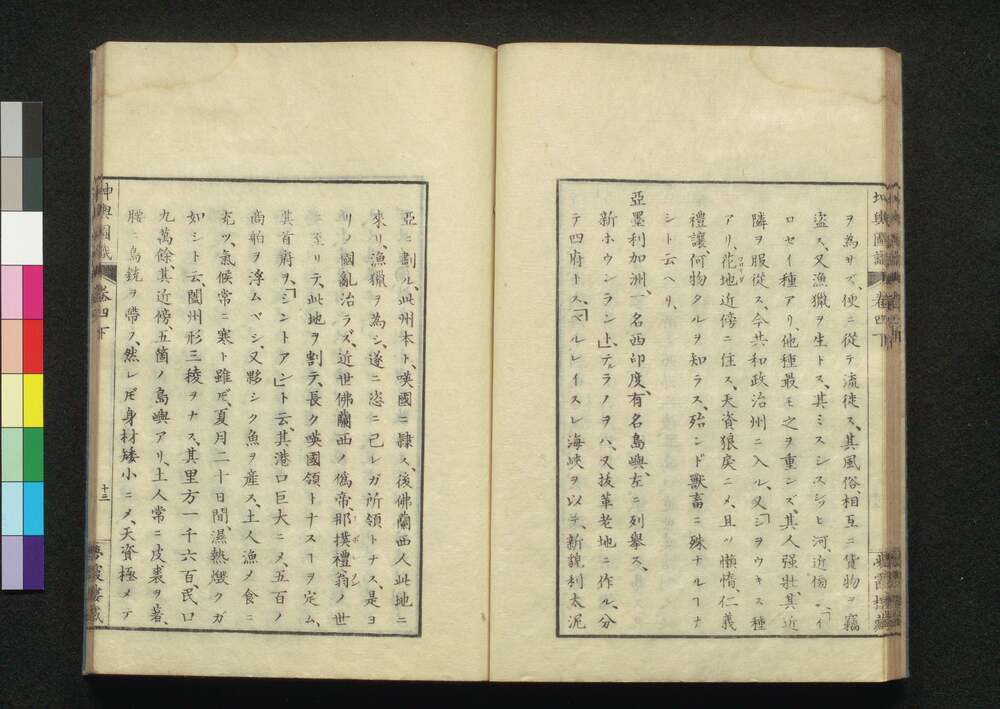 ヲ為サズ、使ニ從テ流徒ス、其風俗、相互ニ貨物ヲ竊
盗ス、又漁獵ヲ生トス、其ミスシスシッヒ河、近傍ニ、「イ
ロセイ種アリ、他種最モ之ヲ重シズ、其人强壮、其近
隣ヲ服從ス、今共和政治州ニ入ル、又「シヲウキス種
アリ、花地近傍ニ住ス、天資狼戻ニ〆、且ツ懶惰、仁義
禮讓何物タルヲ知ラス、殆ンド獸畜ニ殊ナルヿナ
シト云ヘリ、
亞墨利加洲、一名西印度、有名島嶼、左ニ列擧ス、
新ホウンランシ」止、テルラノヲハ、又抜革老地ニ作ル、分
テ四府トス、「ベルレイスレ海峽ヲ以テ、新貌利太泥
亞ニ劃ル、此州本ト、暎國ニ隷ス、後佛蘭西人此地ニ
來リ、漁獵ヲ為シ、遂ニ恣ニ己レガ所領トナス、是ヨ
リノ國亂治ラズ、近世佛蘭西ノ偽帝、那撲禮翁ノ世
ニ至リテ、此地ヲ割テ、長ク暎國領トナスヿヲ定ム、
其首府ヲ、「シントアン」ト云、其港口巨大ニ〆、五百ノ
商舶ヲ浮ムベシ、又夥シク魚ヲ産ス、土人漁〆食ニ
充ツ、氣候常ニ寒ト雖𪜈、夏月二十日間、濕熱燬クガ
如シト云、闔州形三稜ヲナス、其里方一千六百、民口
九萬餘、其近傍、五箇ノ島嶼アリ、土人常ニ皮裘ヲ著、
腰ニ鳥銃ヲ帶フ、然レ𪜈身材矮小ニ〆、天資極メテ
坤輿圖識
卷四下
十三